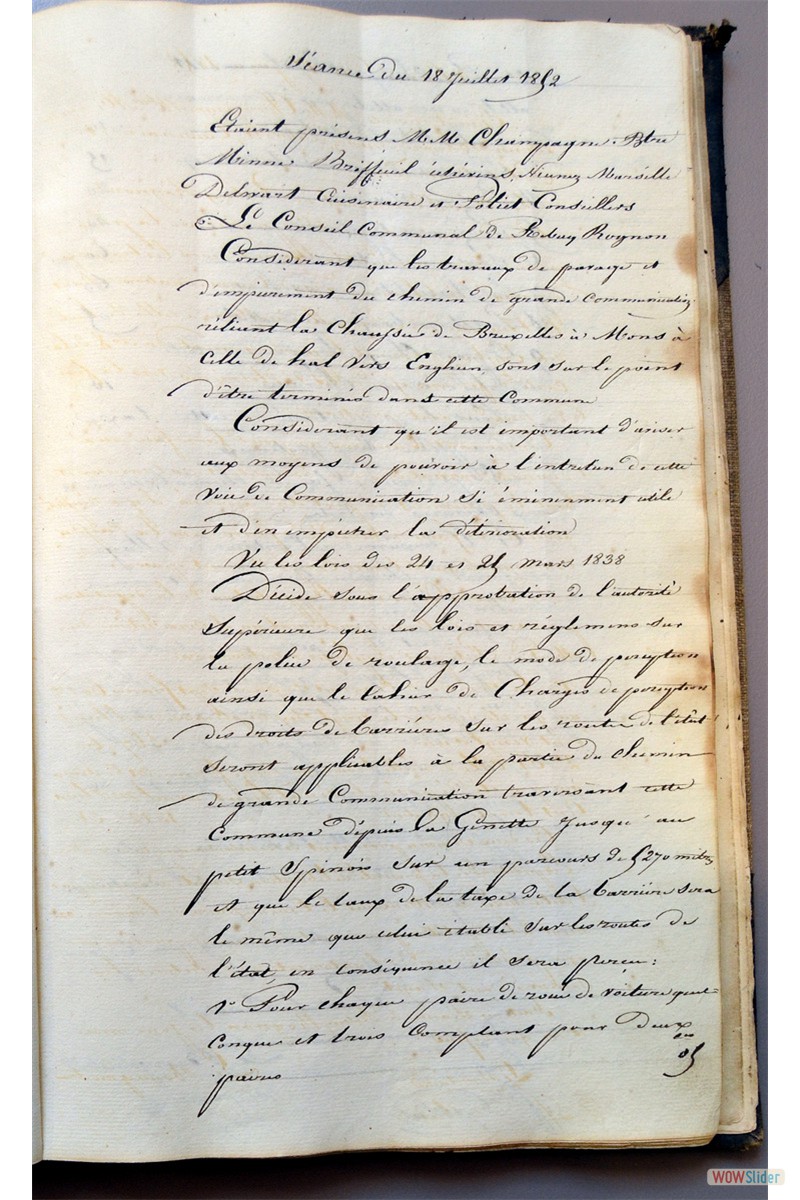 Séance du 18 Juillet 1852
Etaient présens M.M. Champagne Btre
Minne Briffeuil échévins, Marsille
Delwart Cuisenaire et Poliet Conseillers
Le Conseil Communal de Rebecq Rognon
Considerant que les travaux de pavage et
d'empierrement du chemin de grande Communication
réliant la Chaussée de Bruxelles à Mons à
celle de hal vèrs Enghien, sont sur le point
d'être terminés dans cette Commune
Considerant qu'il est important d'aviser
aux moyens de pouvoir à l'entretien de cette
voie de Communication si éminemment utile
et d'en empêcher la déterioration
Vu les lois des 24 et 25 mars 1838
Décide sous l'approbation de l'autorité
Supérieure que les lois et réglemens sur
la police de roulage, le mode de perception
ainsi que le Cahier de Charges de perception
des droits de barrières sur les routes de l'état
seront applicables à la partie du chemin
de grande Communication traversant cette
Commune dépuis la Genette jusqu'au
petit Spinois sur un parcours de 5270 mètres
et que le taux de la taxe de la barrière sera
le même que celui établi sur les routes de
l'état, en conséquence il sera perçu:
1° Pour chaque paire de roue de voiture quel-
conque et trois Comptant pour deux
paires 05
WOWSlider